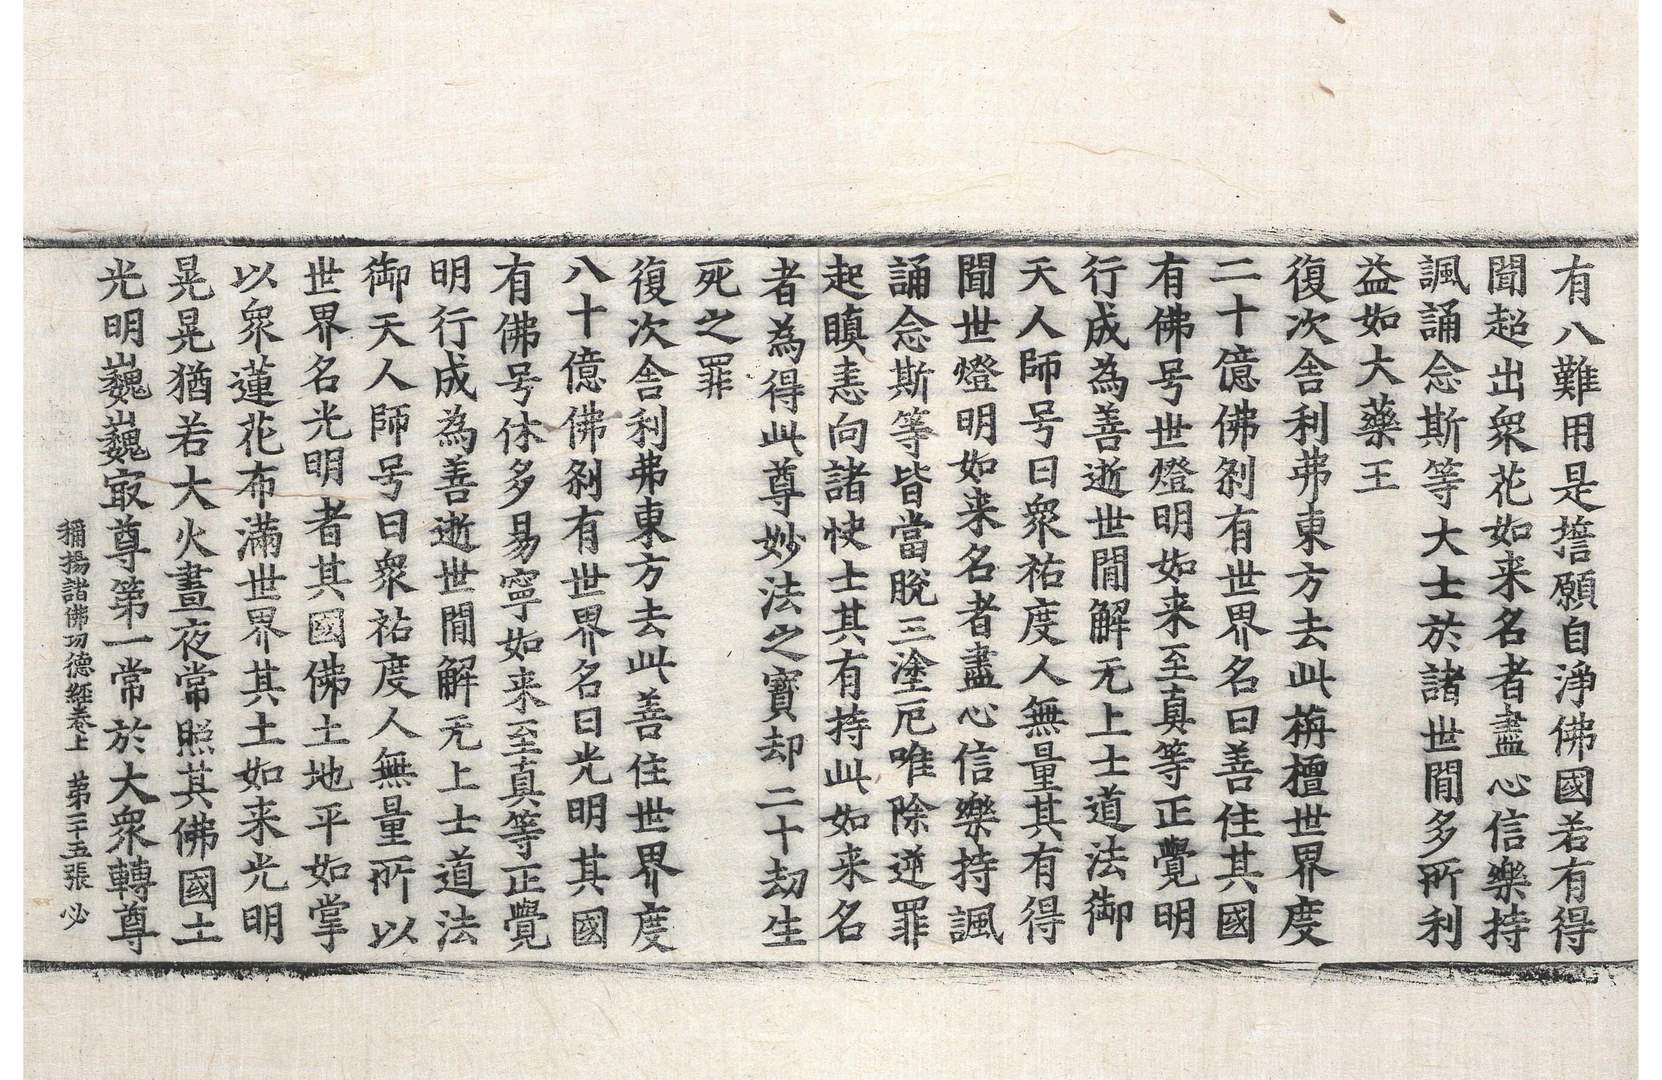 有八難用是誓願自淨佛國若有得
聞超出衆花如来名者盡心信樂持
諷誦念斯等大士於諸世間多所利
益如大藥王
復次舎利弗東方去此栴檀世界度
二十億佛刹有世界名曰善住其國
有佛号世燈明如来至真等正覺明
行成為善逝世間解无上士道法御
天人師号曰衆祐度人無量其有得
聞世燈明如来名者盡心信樂持諷
誦念斯等皆當脫三塗厄唯除逆罪
起瞋恚向諸快士其有持此如来名
者為得此尊妙法之寶却二十劫生
死之罪
復次舎利弗東方去此善住世界度
八十億佛刹有世界名曰光明其國
有佛号休多易寧如来至真等正覺
明行成為善逝世間解无上士道法
御天人師号曰衆祐度人無量所以
世界名光明者其國佛土地平如掌
以衆蓮花布滿世界其土如来光明
晃晃猶若大火晝夜常照其佛國土
光明巍巍㝡尊第一常於大衆轉尊
稱揚諸佛功德經卷上 第三十五張 必